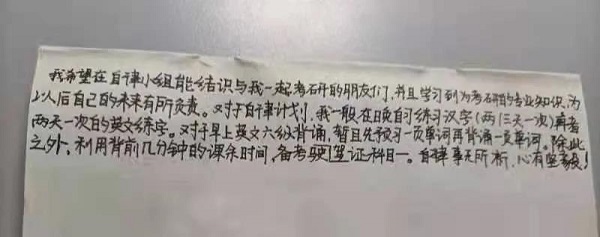 我希望在自律小组能结识与我一起考研的朋友们,并且学习到为考研的专业知识,为
以后自己的未来有所负责。对于自律计划,我一般在晚自习练习汉字(两/三天一次)再者
两天一次的英文练字。对于早上英文六级背诵,暂且先预习一页单词再背诵一页单词。除此
之外,利用背前几分钟的课余时间,备考驾驶证科目一。自律事无所析,心有坚